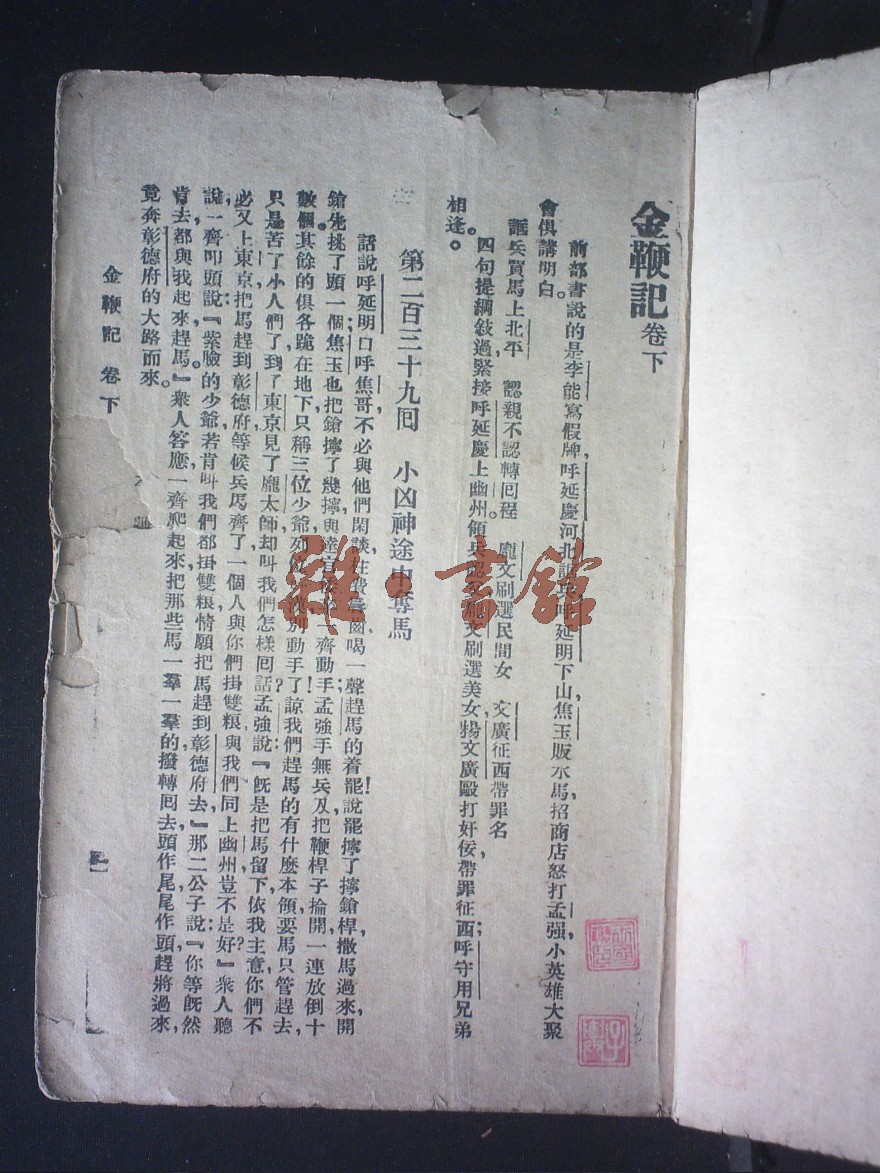 金鞭記 卷下
前部書說的是李能寫假牌，呼延慶河北 呼延明下山，焦玉販水馬，招商店怒打孟强，小英雄大聚
會俱講明白。
誆兵買馬上北平 認親不認轉囘程 龐文刷選民間女 文廣征西帶罪名
四句提綱敍過，緊接呼延慶上幽州領兵 龐文刷選美女，楊文廣毆打奸佞，帶罪征西；呼守用兄弟
相逢。
第二百三十九囘 小凶神途中奪馬
話說呼延明口呼焦哥不必與他們閑談，枉費 齒，喝一聲；趕馬的着罷！說罷擰了擰鎗桿，撒馬過來，開
鎗先挑了頭一個；焦玉也把鎗擰了幾擰，與 一齊動手；孟強手無兵刄，把鞭桿子掄開，一連放倒十
數個。其餘的俱各跪在地下，只稱三位少爺 別動手了！諒我們趕馬的有什麼本領，要馬只管趕去，
只是苦了小人們了，到了東京，見了龐太師，却叫我們怎樣囘話？孟強說：『旣是把馬留下，依我主意，你們不
必又上東京，把馬趕到彰德府等候，兵馬齊了，一個人與你們掛雙粮，與我們同上幽州，豈不是好？』衆人聽
說，一齊叩頭說：『紫臉的少爺若肯叫我們都掛雙粮，情願把馬趕到彰德府去。』那二公子說：『你等旣然
肯去，都與我起來趕馬。』衆人答應，一齊爬起來，把那些馬一羣一羣的撥轉囘去，頭作尾，尾作頭，趕將過來，
竟奔彰德府的大路而來。
金鞭記 卷下
一
雜·書館